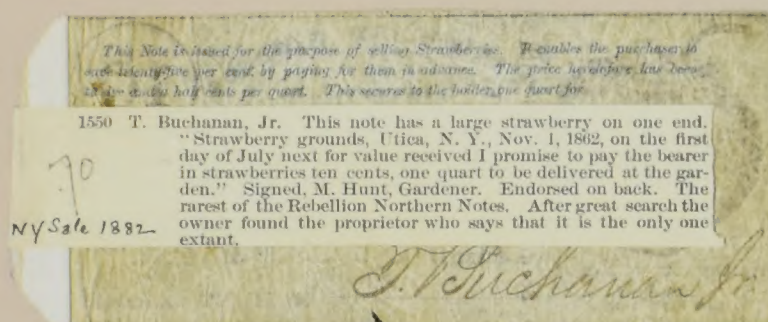 This Note is issued for the purpose of selling Strawberries. It enables the purchaser to
save twenty-five per cent. by paying for them in advance. The price heretofore has been
twelve and a half cents per quart. This secures to the holder one quart for
1550 T. Buchanan, Jr. This note has a large strawberry on one end.
"Strawberry grounds, Utica, N. Y., Nov. 1, 1862, on the first
day of July next for value received I promise to pay the bearer
in strawberries ten cents, one quart to be delivered at the gar-
den." Signed, M. Hunt, Gardener. Endorsed on back. The
rarest of the Rebellion Northern Notes. After great search the
owner found the proprietor who says that it is the only one
extant.
NY Sale 1882
T. Buchanan Jr.